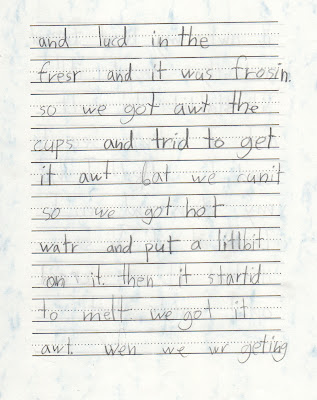 and lucd in the
fresr and it wus frosin.
so we got awt the
cups and trid to get
it awt bat we cunit
so we got hot
watr and put a littbit
on it. then it startid
to melt we got it
awt. wen we wr geting